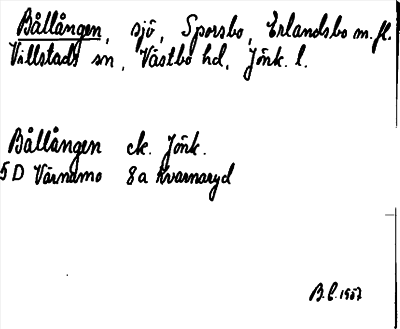 Bållången, sjö, Sporsbo, Erlandsbo m. fl.
Villstads sn, Västbo hd, Jönk. l.
Bållången ek. Jönk.
5D Värnamo 8a Kvarnaryd
B.C. 1957